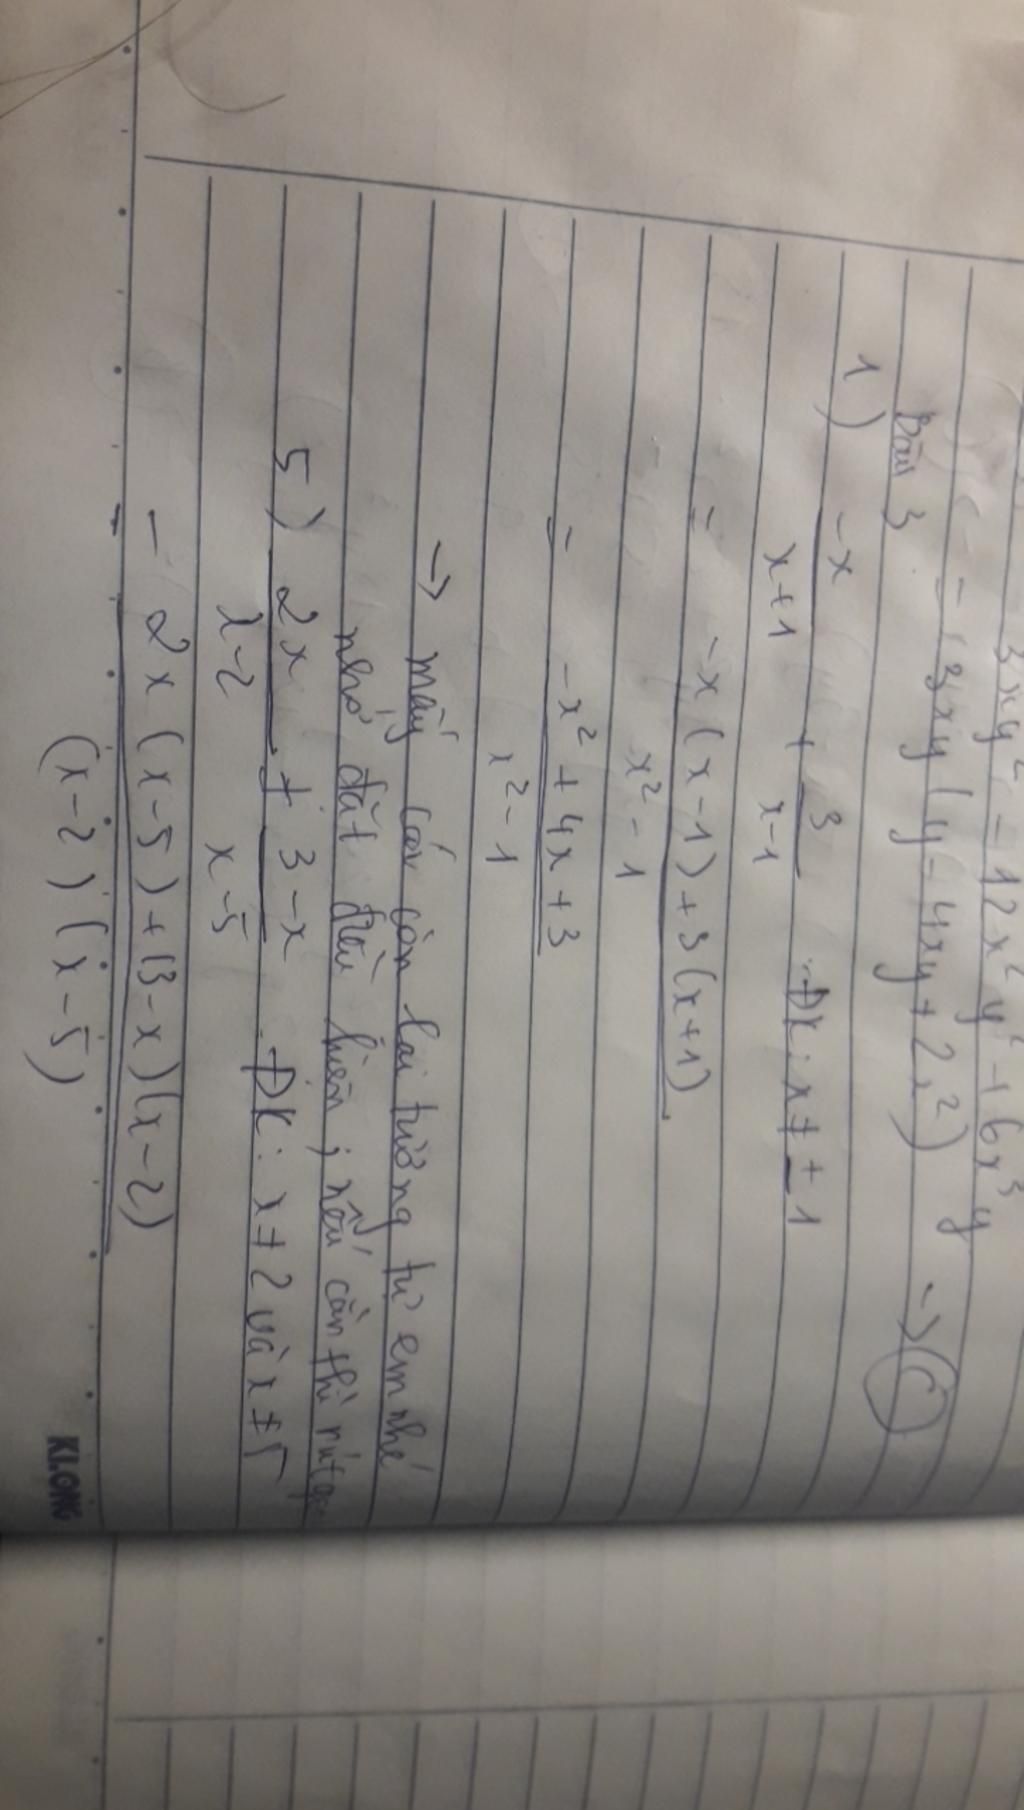 3xy² - 12x²y² + 6x³y
= (3xy (y - 4xy + 2x²) → C
Bài 3
1) -x/x+1 + 3/x-1 ĐK: x ≠ ± 1
= -x(x-1)+3(x+1)/x²-1
= -x²+4x+3/x²-1
→ mấy câu còn lại tương tự em nhé
nhớ đặt điều kiện, nếu cần thì rút gọ
5) 2x/x-2 + 3-x/x-5 ĐK: x ≠ 2 và x ≠ 5
= 2x(x-5)+(3-x)(x-2)/(x-2)(x-5)
KLONG